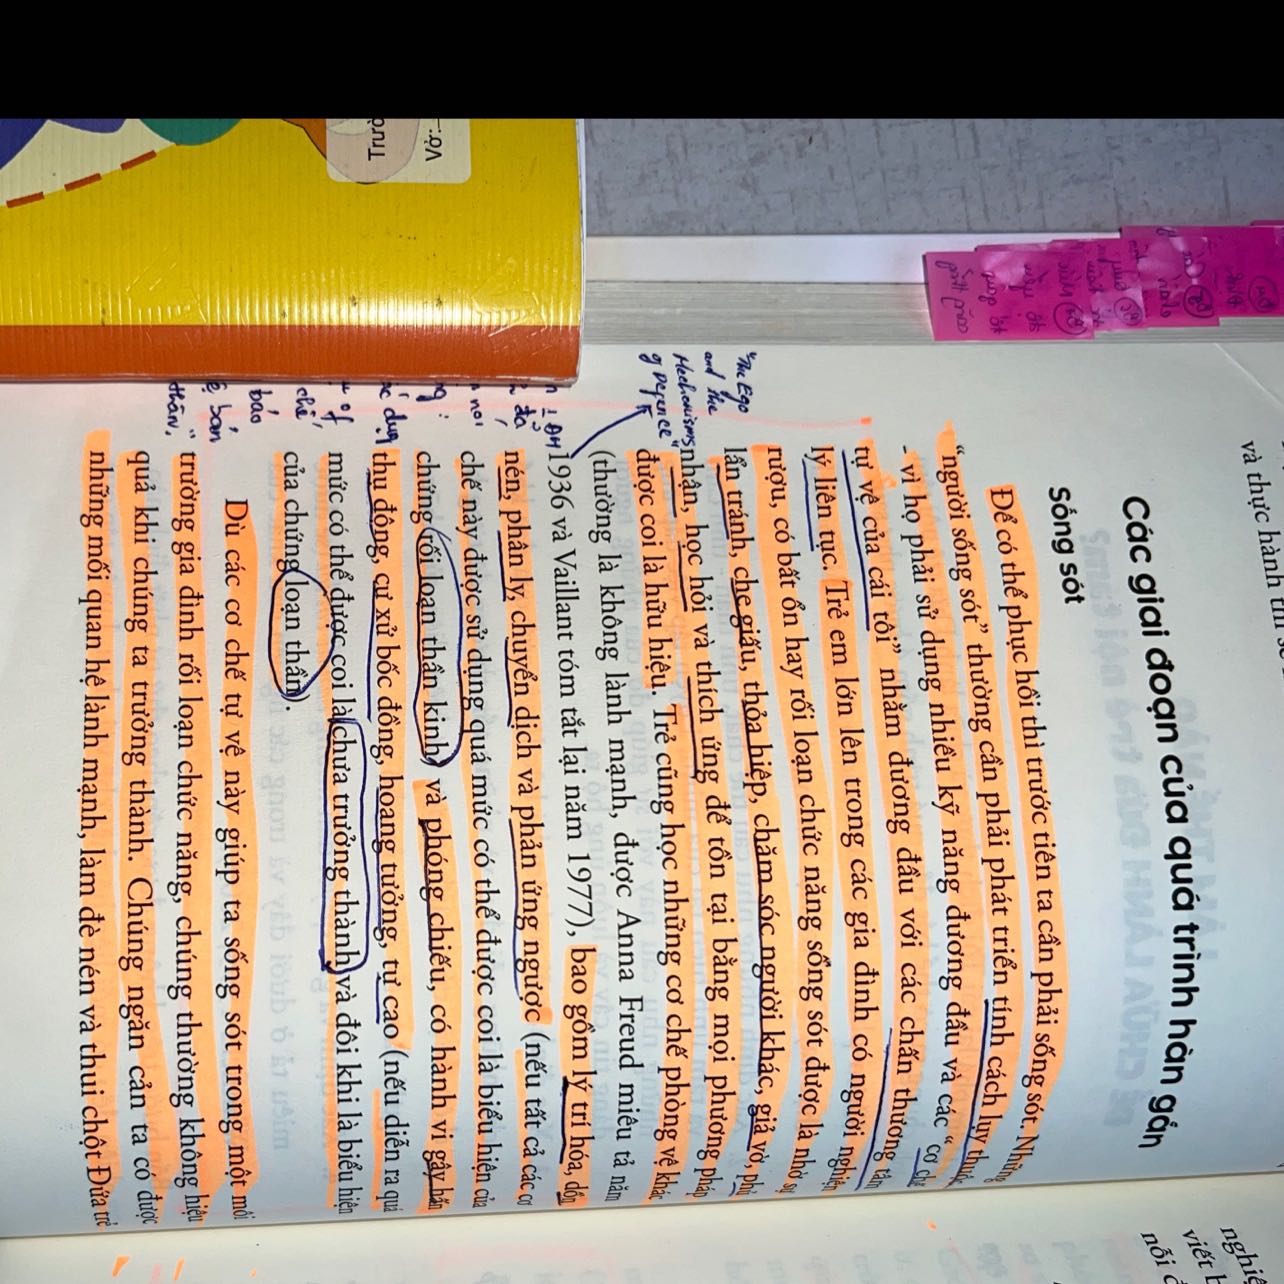 và thực hành
Các giai đoạn của quá trình hàn gắn
Sống sót
Để có thể phục hồi thì trước tiên ta cần phải sống sót. Những
“người sống sót” thường cần phải phát triển tính cách lụy thuộc
- vì họ phải sử dụng nhiều kỹ năng đương đầu và các “cơ chế
tự vệ của cái tôi” nhằm đương đầu với các chấn thương tâm
lý liên tục. Trẻ em lớn lên trong các gia đình có người nghiện
rượu, có bất ổn hay rối loạn chức năng sống sót được là nhờ sự
lẩn tránh, che giấu, thỏa hiệp, chăm sóc người khác, giả vờ, phủ
nhận, học hỏi và thích ứng để tồn tại bằng mọi phương pháp
được coi là hữu hiệu. Trẻ cũng học những cơ chế phòng vệ khác
(thường là không lành mạnh, được Anna Freud miêu tả năm
1936 và Vaillant tóm tắt lại năm 1977), bao gồm lý trí hóa, dồn
nén, phân ly, chuyển dịch và phản ứng ngược (nếu tất cả các cơ
chế này được sử dụng quá mức có thể được coi là biểu hiện của
chứng rối loạn thần kinh) và phóng chiếu, có hành vi gây hấn
thụ động, cư xử bốc đồng, hoang tưởng, tự cao (nếu diễn ra quá
mức có thể được coi là chưa trưởng thành) và đôi khi là biểu hiện
của chứng loạn thần).
Dù các cơ chế tự vệ này giúp ta sống sót trong một môi
trường gia đình rối loạn chức năng, chúng thường không hiệu
quả khi chúng ta trưởng thành. Chúng ngăn cản ta có được
những mối quan hệ lành mạnh, làm đè nén và thui chột Đứa trẻ
"The Ego
and the
Mechanisms
of Defence"
of
chế
bảo
bản
thân,"
Vở:
nghiệ
viết
nỗi